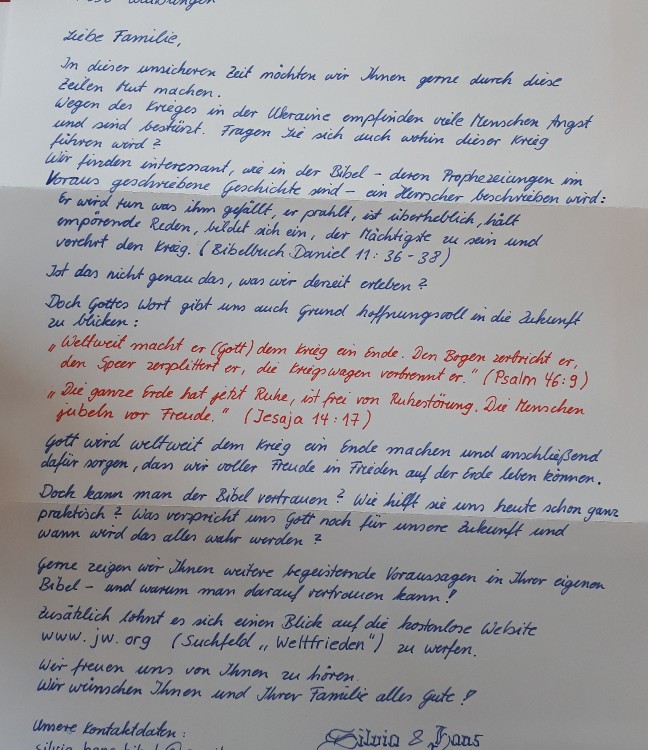 Liebe Familie,
In dieser unsicheren Zeit möchten wir Ihnen gerne durch diese
Zeilen Mut machen.
Wegen des Krieges in der Ukraine empfinden viele Menschen Angst
und sind bestürzt. Fragen Sie sich auch wohin dieser Krieg
führen wird?
Wir finden interessant, wie in der Bibel - deren Prophezeiungen im
Voraus geschriebene Geschichte sind - ein Herrscher beschrieben wird:
Er wird tun was ihm gefällt, er prahlt, ist überheblich, hält
empörende Reden, bildet sich ein, der Mächtigste zu sein und
verehrt den Krieg. (Bibelbuch Daniel 11:36-38)
Ist das nicht genau das, was wir derzeit erleben?
Doch Gottes Wort gibt uns auch Grund hoffnungsvoll in die Zukunft
zu blicken:
„Weltweit macht er (Gott) dem Krieg ein Ende. Den Bogen zerbricht er,
den Speer zersplittert er, die Kriegswagen verbrennt er." (Psalm 46:9)
„Die ganze Erde hat jetzt Ruhe, ist frei von Ruhestörung. Die Menschen
jubeln vor Freude." (Jesaja 14:17)
Gott wird weltweit dem Krieg ein Ende machen und anschließend
dafür sorgen, dass wir voller Freude in Frieden auf der Erde leben können.
Doch kann man der Bibel vertrauen? Wie hilft sie uns heute schon ganz
praktisch? Was verspricht uns Gott noch für unsere Zukunft und
wann wird das alles wahr werden?
Gerne zeigen wir Ihnen weitere begeisternde Voraussagen in Ihrer eigenen
Bibel - und warum man darauf vertrauen kann!
Zusätzlich lohnt es sich einen Blick auf die kostenlose Website
www.jw.org (Suchfeld „Weltfrieden") zu werfen.
Wir freuen uns von Ihnen zu hören.
Wir wünschen Ihnen und Ihrer Familie alles Gute!
Unsere Kontaktdaten:
Silvia & Hans